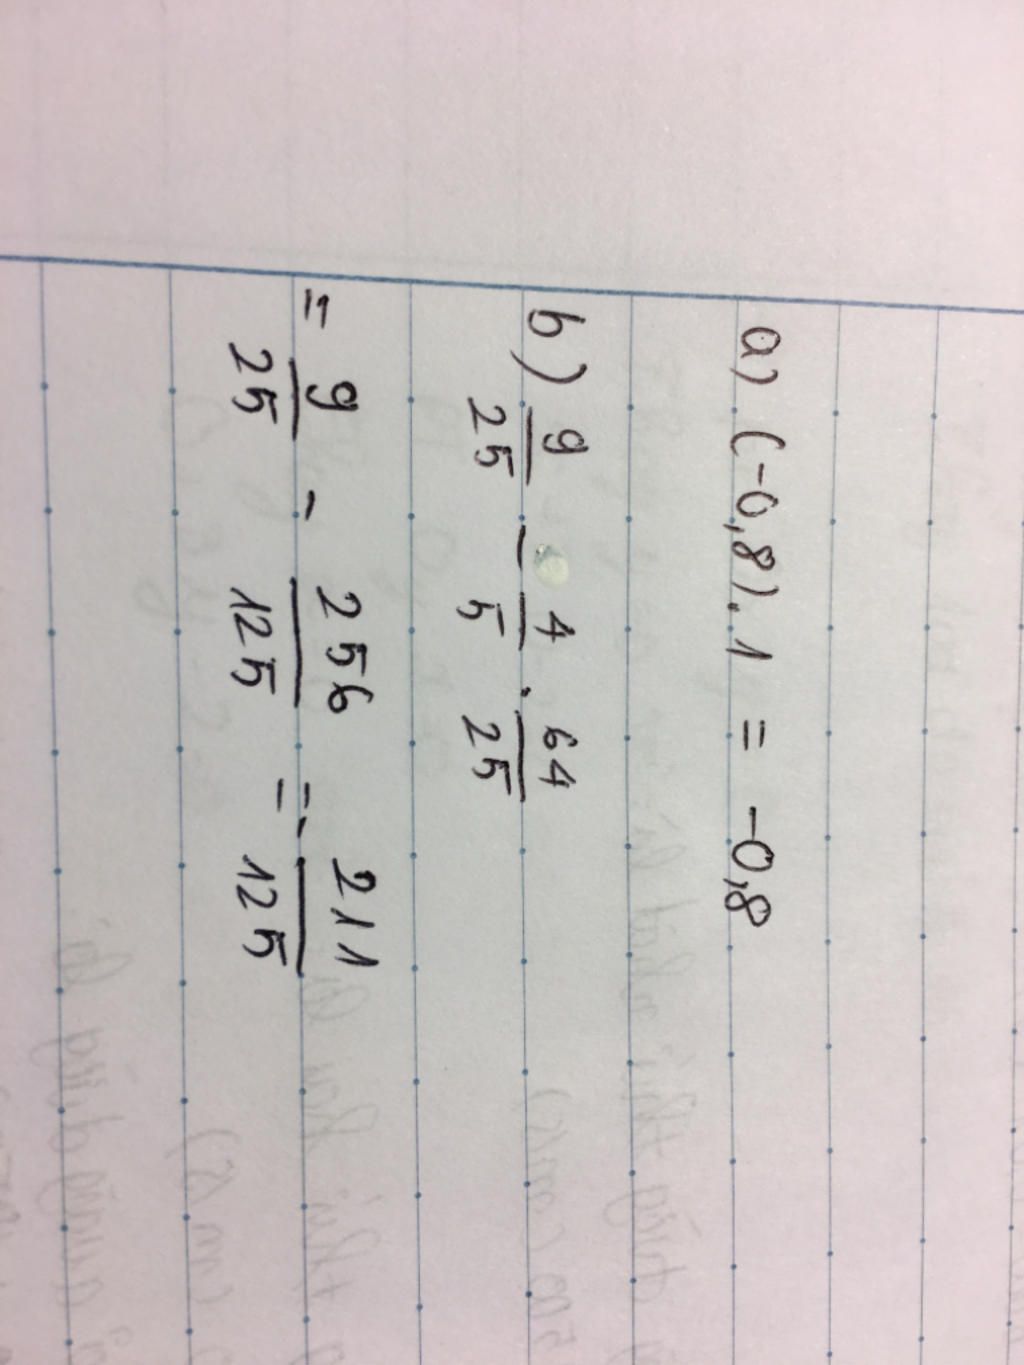 a) (-0,8).1 = -0,8
b) 9/25 - 4/5 . 64/25
= 9/25 - 256/125 = - 211/125